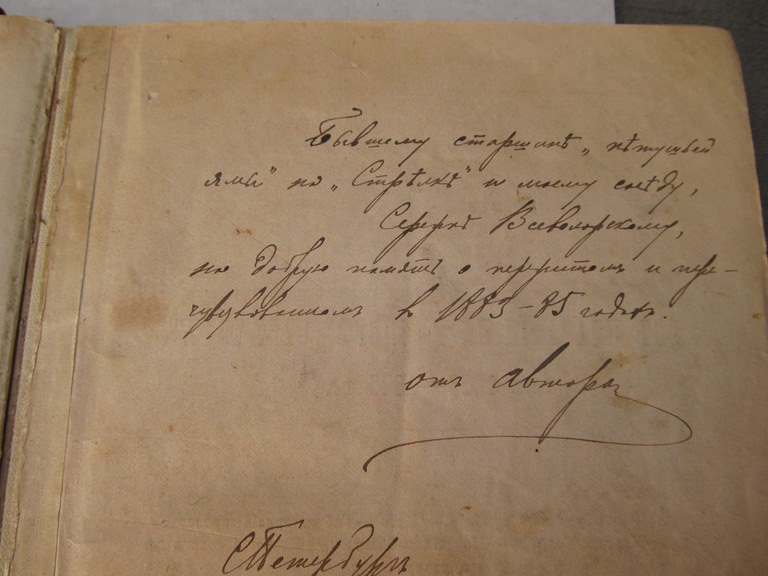 Бывшему старшинѣ „пѣтушьей
ямы" на „Стрѣлкѣ" и моему сосѣду,
Сережѣ Всеволожскому,
на добрую память о пережитомъ и пере-
чувствованномъ въ 1883-85 годахъ.
отъ автора
СПетербургъ